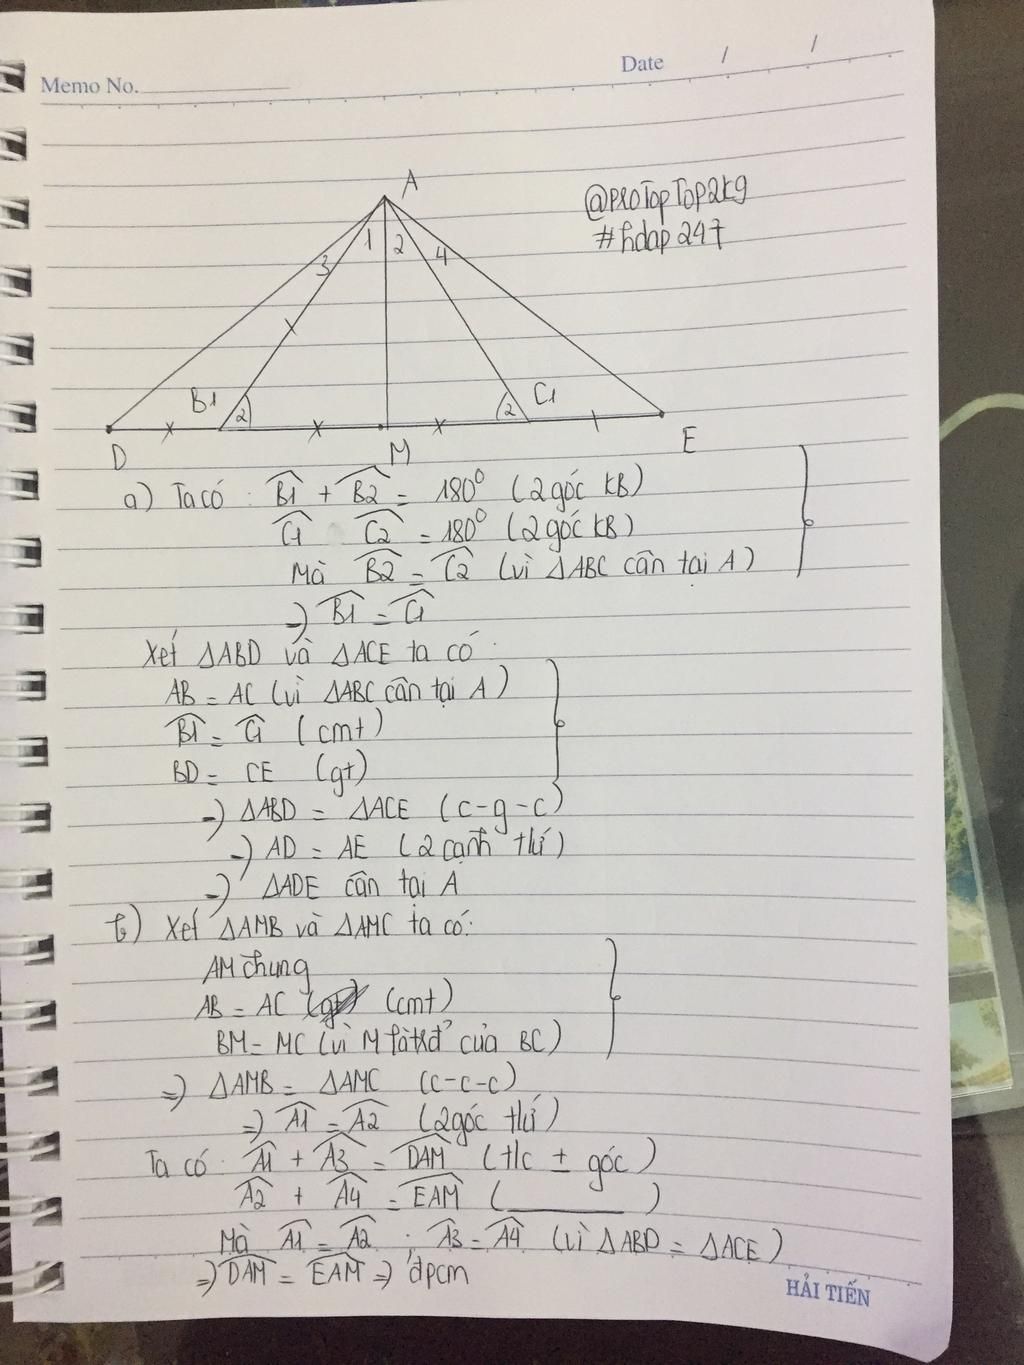 Memo No.
Date / /
A
@PROTopTop2k9
#hdap 247
1 2
3 4
B1 2
2 C1
D
M
E
a) Ta có : B1 + B2 = 180° (2 góc KB)
C1 C2 = 180° (2 góc KB)
Mà B2 = C2 (vì ΔABC cân tại A)
=) B1 = C1
Xét ΔABD và ΔACE ta có :
AB = AC (vì ΔABC cân tại A)
B1 = C1 (cmt)
BD = CE (gt)
=) ΔABD = ΔACE (c-g-c)
=) AD = AE (2 cạnh t/ứ)
=) ΔADE cân tại A
b) Xét ΔAMB và ΔAMC ta có:
AM chung
AB = AC (cmt)
BM = MC (vì M là tđ của BC)
=) ΔAMB = ΔAMC (c-c-c)
=) A1 = A2 (2 góc t/ứ)
Ta có : A1 + A3 = DAM (t/c ± góc)
A2 + A4 = EAM ( )
Mà A1 = A2 ; A3 = A4 (vì ΔABD = ΔACE)
=) DAM = EAM =) đpcm
HẢI TIẾN